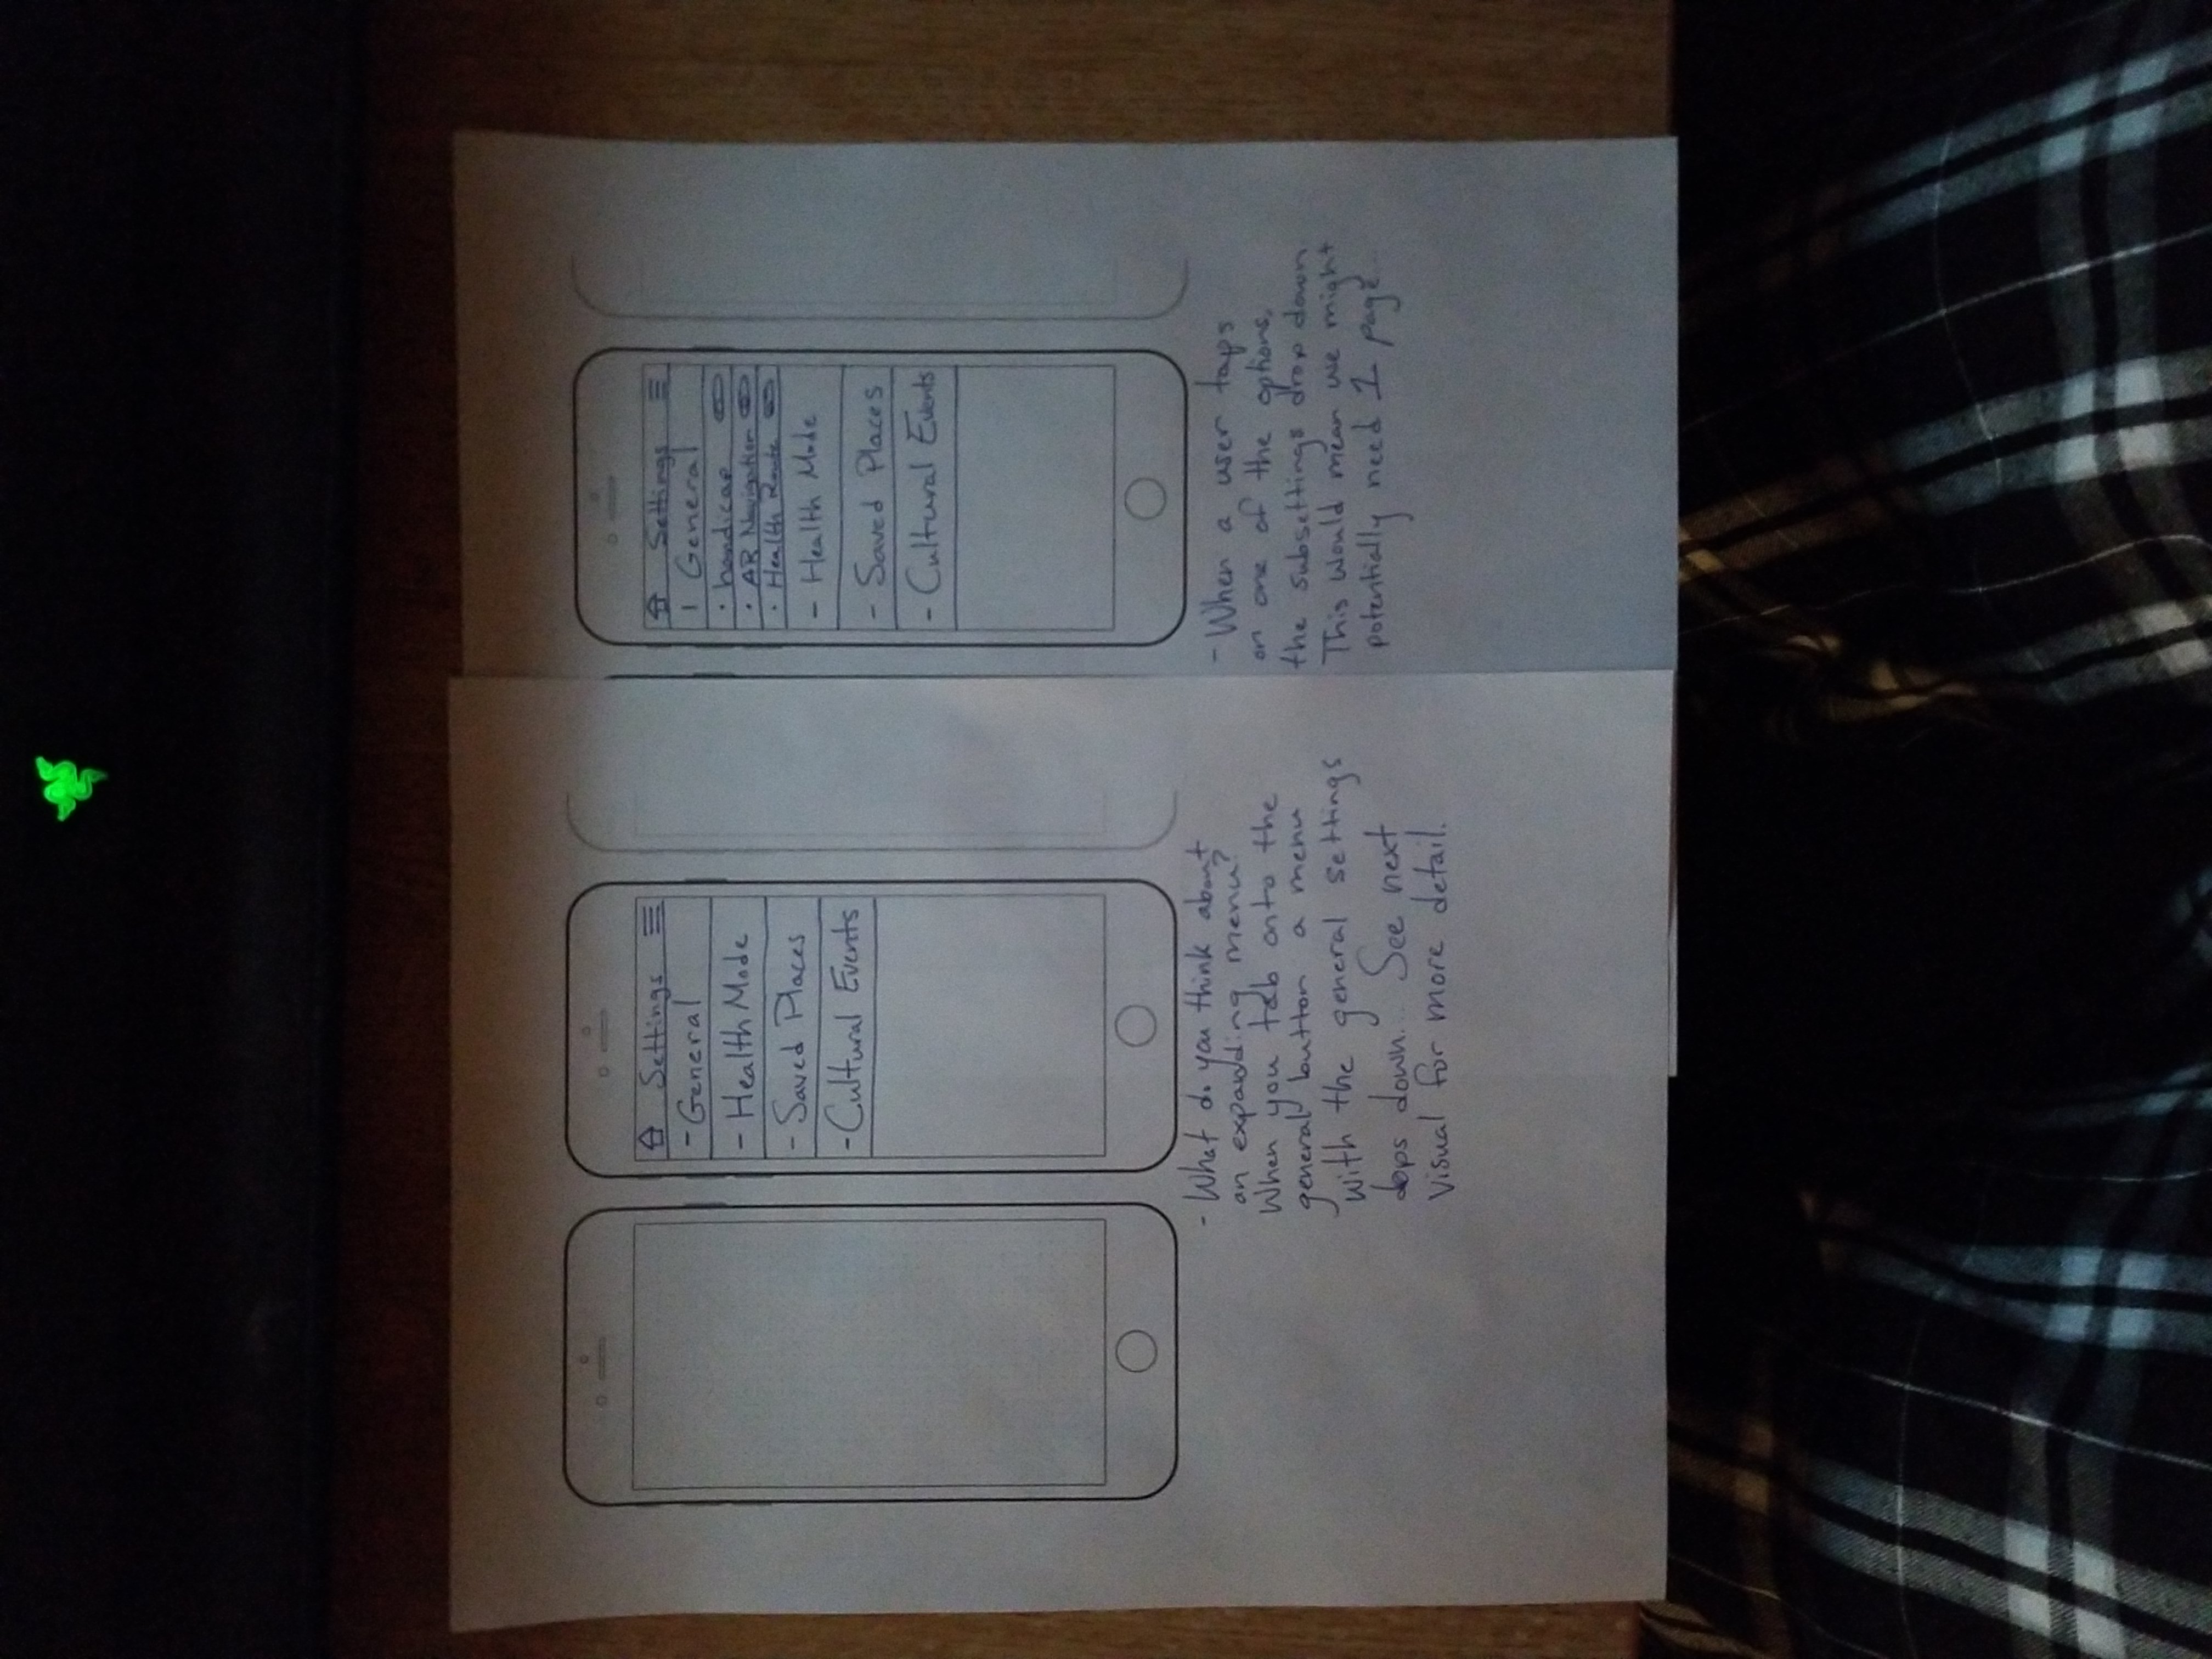 Settings
- General
- Health Mode
- Saved Places
- Cultural Events
- What do you think about
an expanding menu?
When you tab onto the
general button a menu
with the general settings
dops down... See next
visual for more detail.
Settings
| General
• handicap
• AR Navigation
• Health Route
- Health Mode
- Saved Places
- Cultural Events
- When a user taps
on one of the options,
the subsettings drop down
This would mean we might
potentially need 1 page...